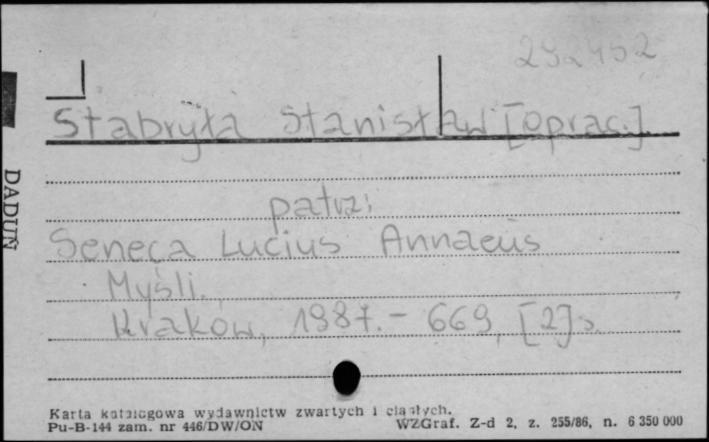 292452
Stabryła Stanisław [oprac.]
patrz:
Seneca Lucius Annaeus
Myśli.
Kraków, 1987. - 669, [2] s.
DADUN
Karta katalogowa wydawnictw zwartych i ciągłych.
Pu-B-144 zam. nr 446/DW/ON WZGraf. Z-d 2, z. 255/86, n. 6 350 000